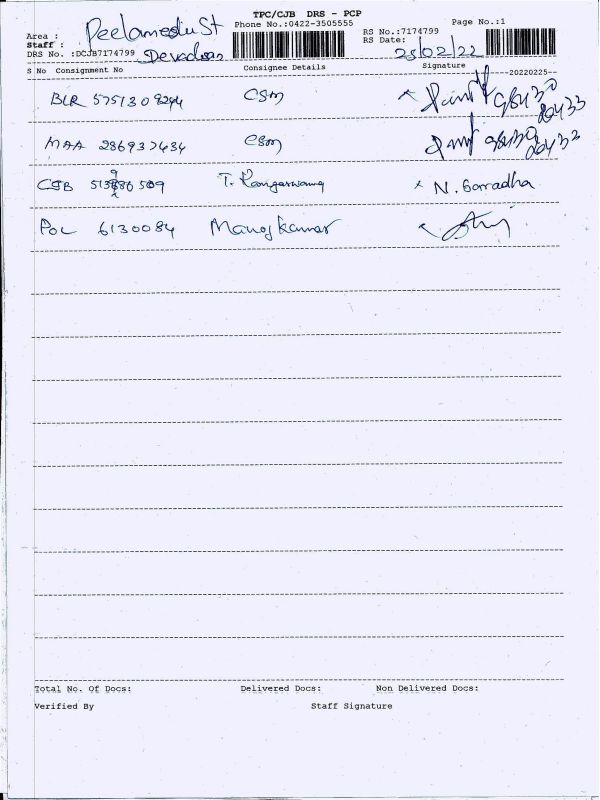 TPC/CJB DRS - PCP
Phone No.:0422-3505555
Page No.:1
Area : Peelamedu St
RS No.:7174799
Staff : Devadoss
RS Date: 25/02/22
DRS No. :DCJB7174799
S No Consignment No Consignee Details Signature --20220225-
BLR 5751308294 CSM
MAA 286937434 CSM
CJB T. Rangaswamy N.
POL 6130084 Manoj Kumar
Total No. Of Docs: Delivered Docs: Non Delivered Docs:
Verified By Staff Signature